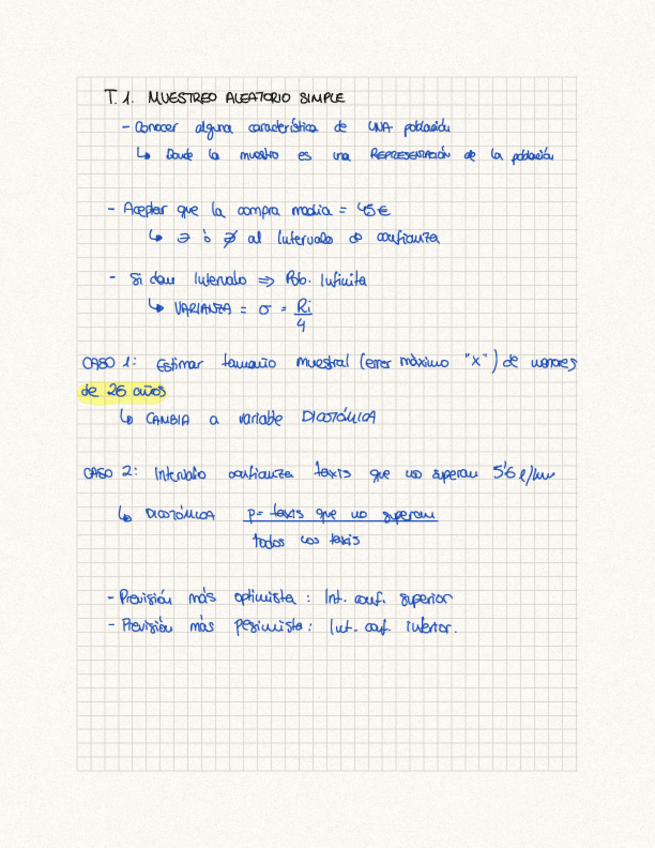 T.1. MUESTREO ALEATORIO SIMPLE
- Conocer alguna característica de UNA población
↳ Donde la muestra es una REPRESENTACIÓN de la población
- Aceptar que la compra media = 45€
↳ ∋ ó ∌ al Intervalo de confianza
- Si dan Intervalo ⇒ Pob. Infinita
↳ VARIANZA = σ = Ri
4
CASO 1: Estimar tamaño muestral (error máximo "X") de menores
de 26 años
↳ CAMBIA a variable DICOTÓMICA
CASO 2: Intervalo confianza taxis que no superan 5'6 l/km
↳ DICOTÓMICA p= taxis que no superan
todos los taxis
- Previsión más optimista: Int. conf. superior
- Previsión más pesimista: Int. conf. inferior.